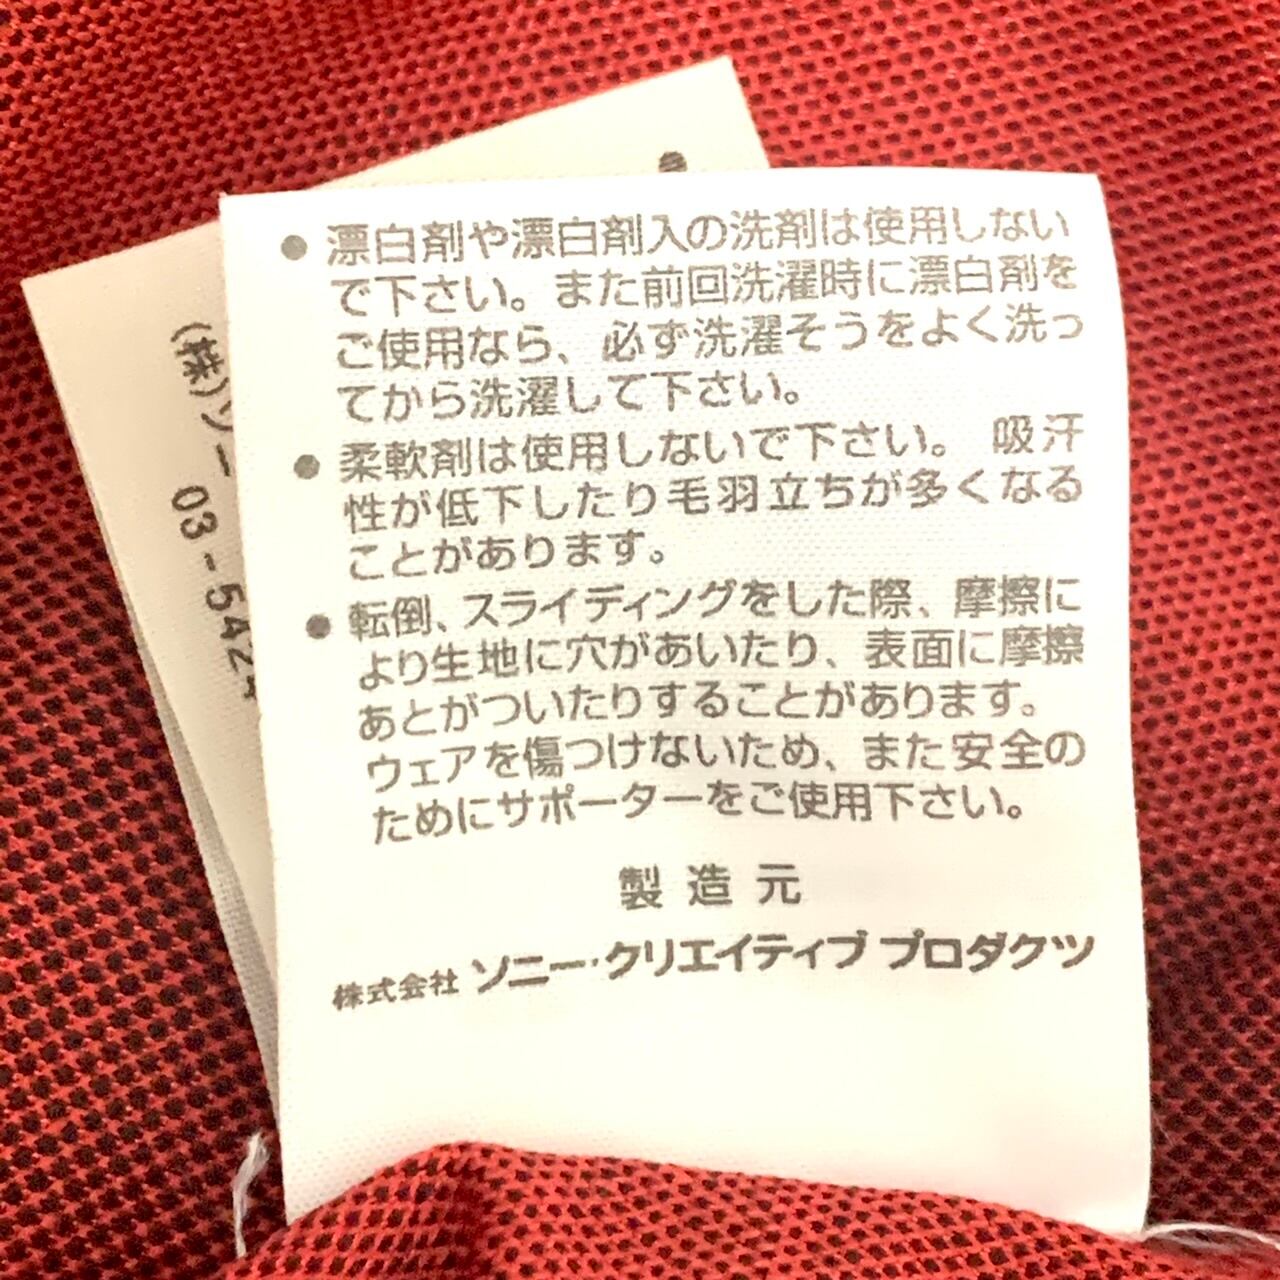 ● 漂白剤や漂白剤入の洗剤は使用しない
で下さい。また前回洗濯時に漂白剤を
ご使用なら、必ず洗濯そうをよく洗っ
てから洗濯して下さい。
● 柔軟剤は使用しないで下さい。 吸汗
性が低下したり毛羽立ちが多くなる
ことがあります。
● 転倒、スライディングをした際、摩擦に
より生地に穴があいたり、表面に摩擦
あとがついたりすることがあります。
ウェアを傷つけないため、また安全の
ためにサポーターをご使用下さい。
製造元
株式会社 ソニー・クリエイティブ プロダクツ
(株)ソニー
03-542